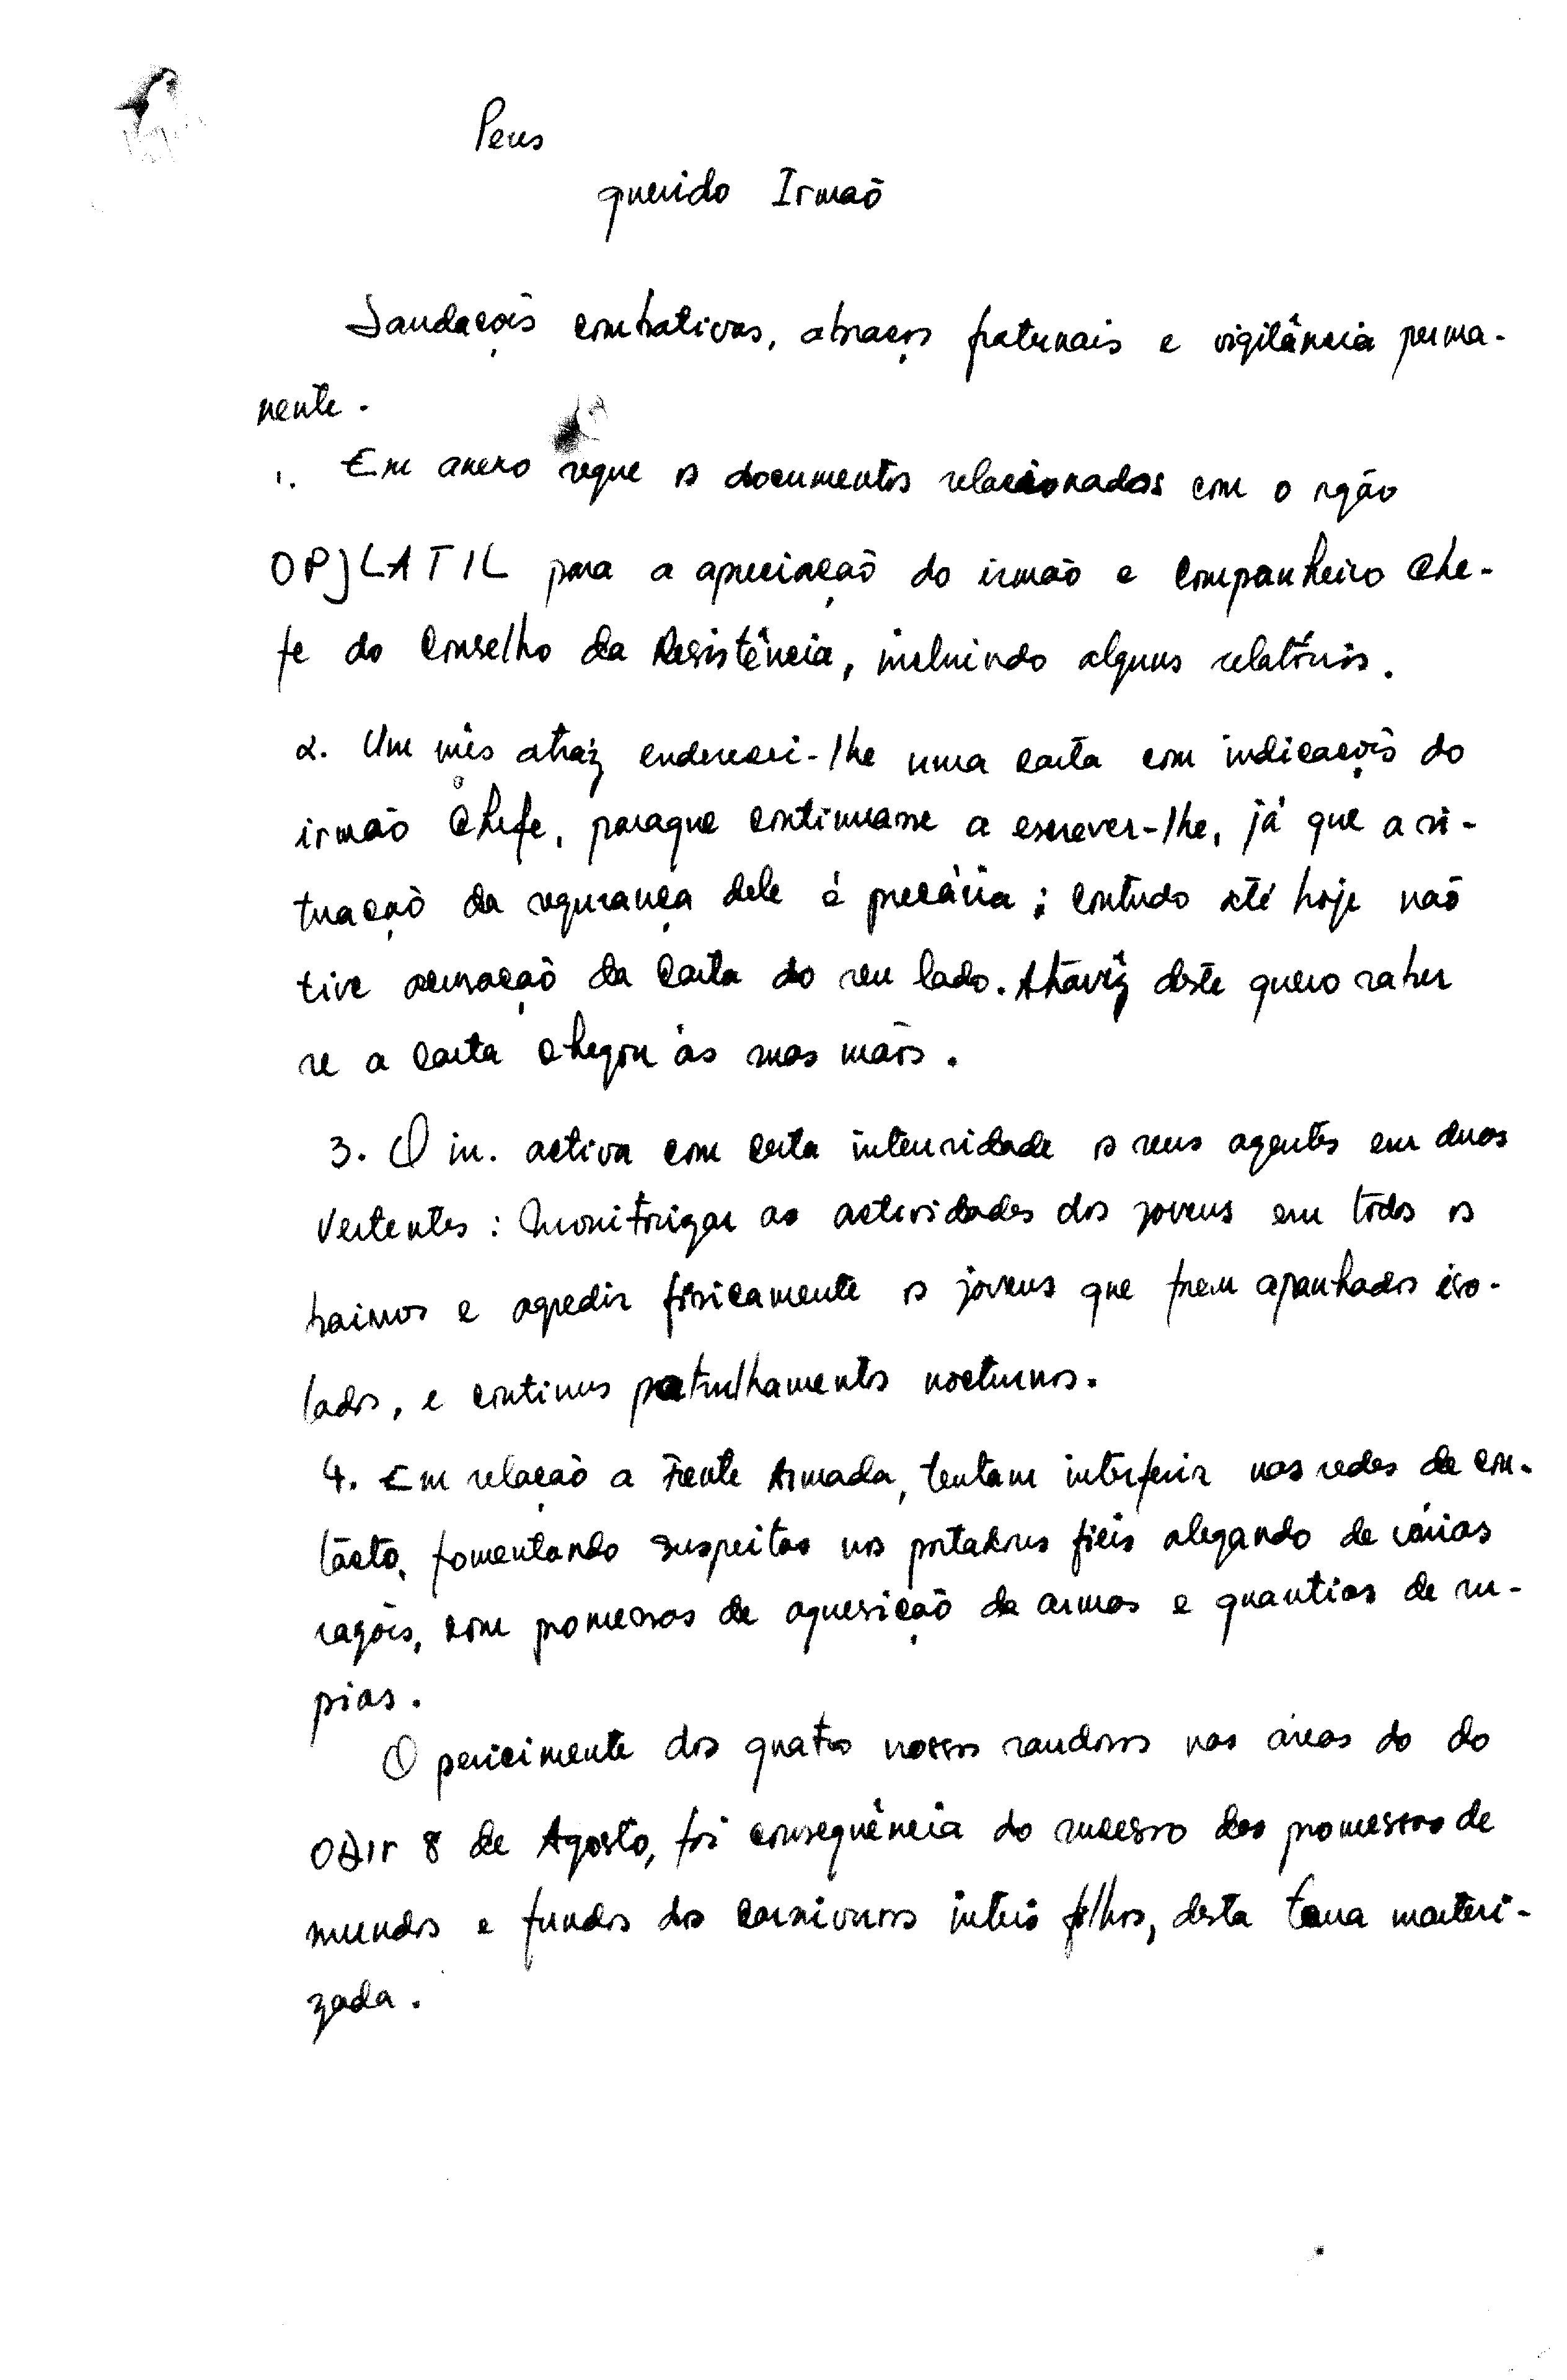 Peus
querido Irmaõ
Saudaçoẽs combativas, abraços fraternais e vigilância perma-
nente.
1. Em anexo segue os documentos relacionados com o rgão
OPJLATIL para a apreciaçaõ do irmão e Companheiro Che-
fe do Conselho da Resistência, incluindo alguns relatórios.
2. Um mês atráz enderecei-lhe uma carta com indicaçoẽs do
irmão Chefe, paraque continuasse a escrever-lhe, já que a si-
tuaçaõ da segurança dele é precária; contudo até hoje naõ
tive acusaçaõ da carta do seu lado. Atravéz deste quero saber
se a carta chegou às suas maõs.
3. O in. activa com certa intensidade os seus agentes em duas
Vertentes: Monitorizar as actividades dos jovens em todos os
bairros e agredir físicamente os jovens que forem apanhados iso-
lados, e continuos patrulhamentos nocturnos.
4. Em relaçaõ a Frente Armada, tentam interferir nas redes de con-
tacto, fomentando suspeitas nos portadores fiéis alegando de várias
razoẽs, com promessas de aquesiçaõ de armas e quantias de ru-
pias.
O pericimente dos quatro nossos saudosos nas áreas do do
Odir 8 de Agosto, foi consequência do sucesso das promessas de
mundos e fundos dos carnivoros filhos, desta terra marteri-
zada.